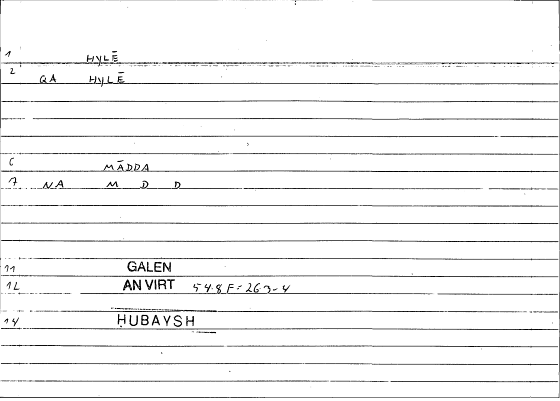 1 HYLĒ
2 QA HYLĒ
6 MĀDDA
7 NA M D D
11 GALEN
12 AN VIRT 548 F = 263-4
14 ḤUBAYSH